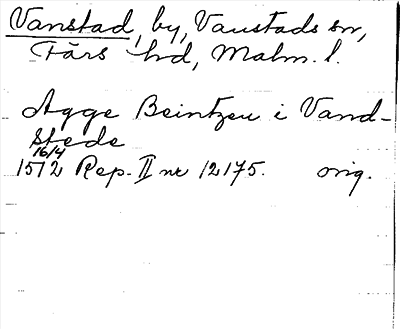 Vanstad, by, Vanstads sn,
Färs hd, Malm. l.
Agge Beintzen i Vand-
stede
16/4
1512 Rep. II nr 12175. orig.